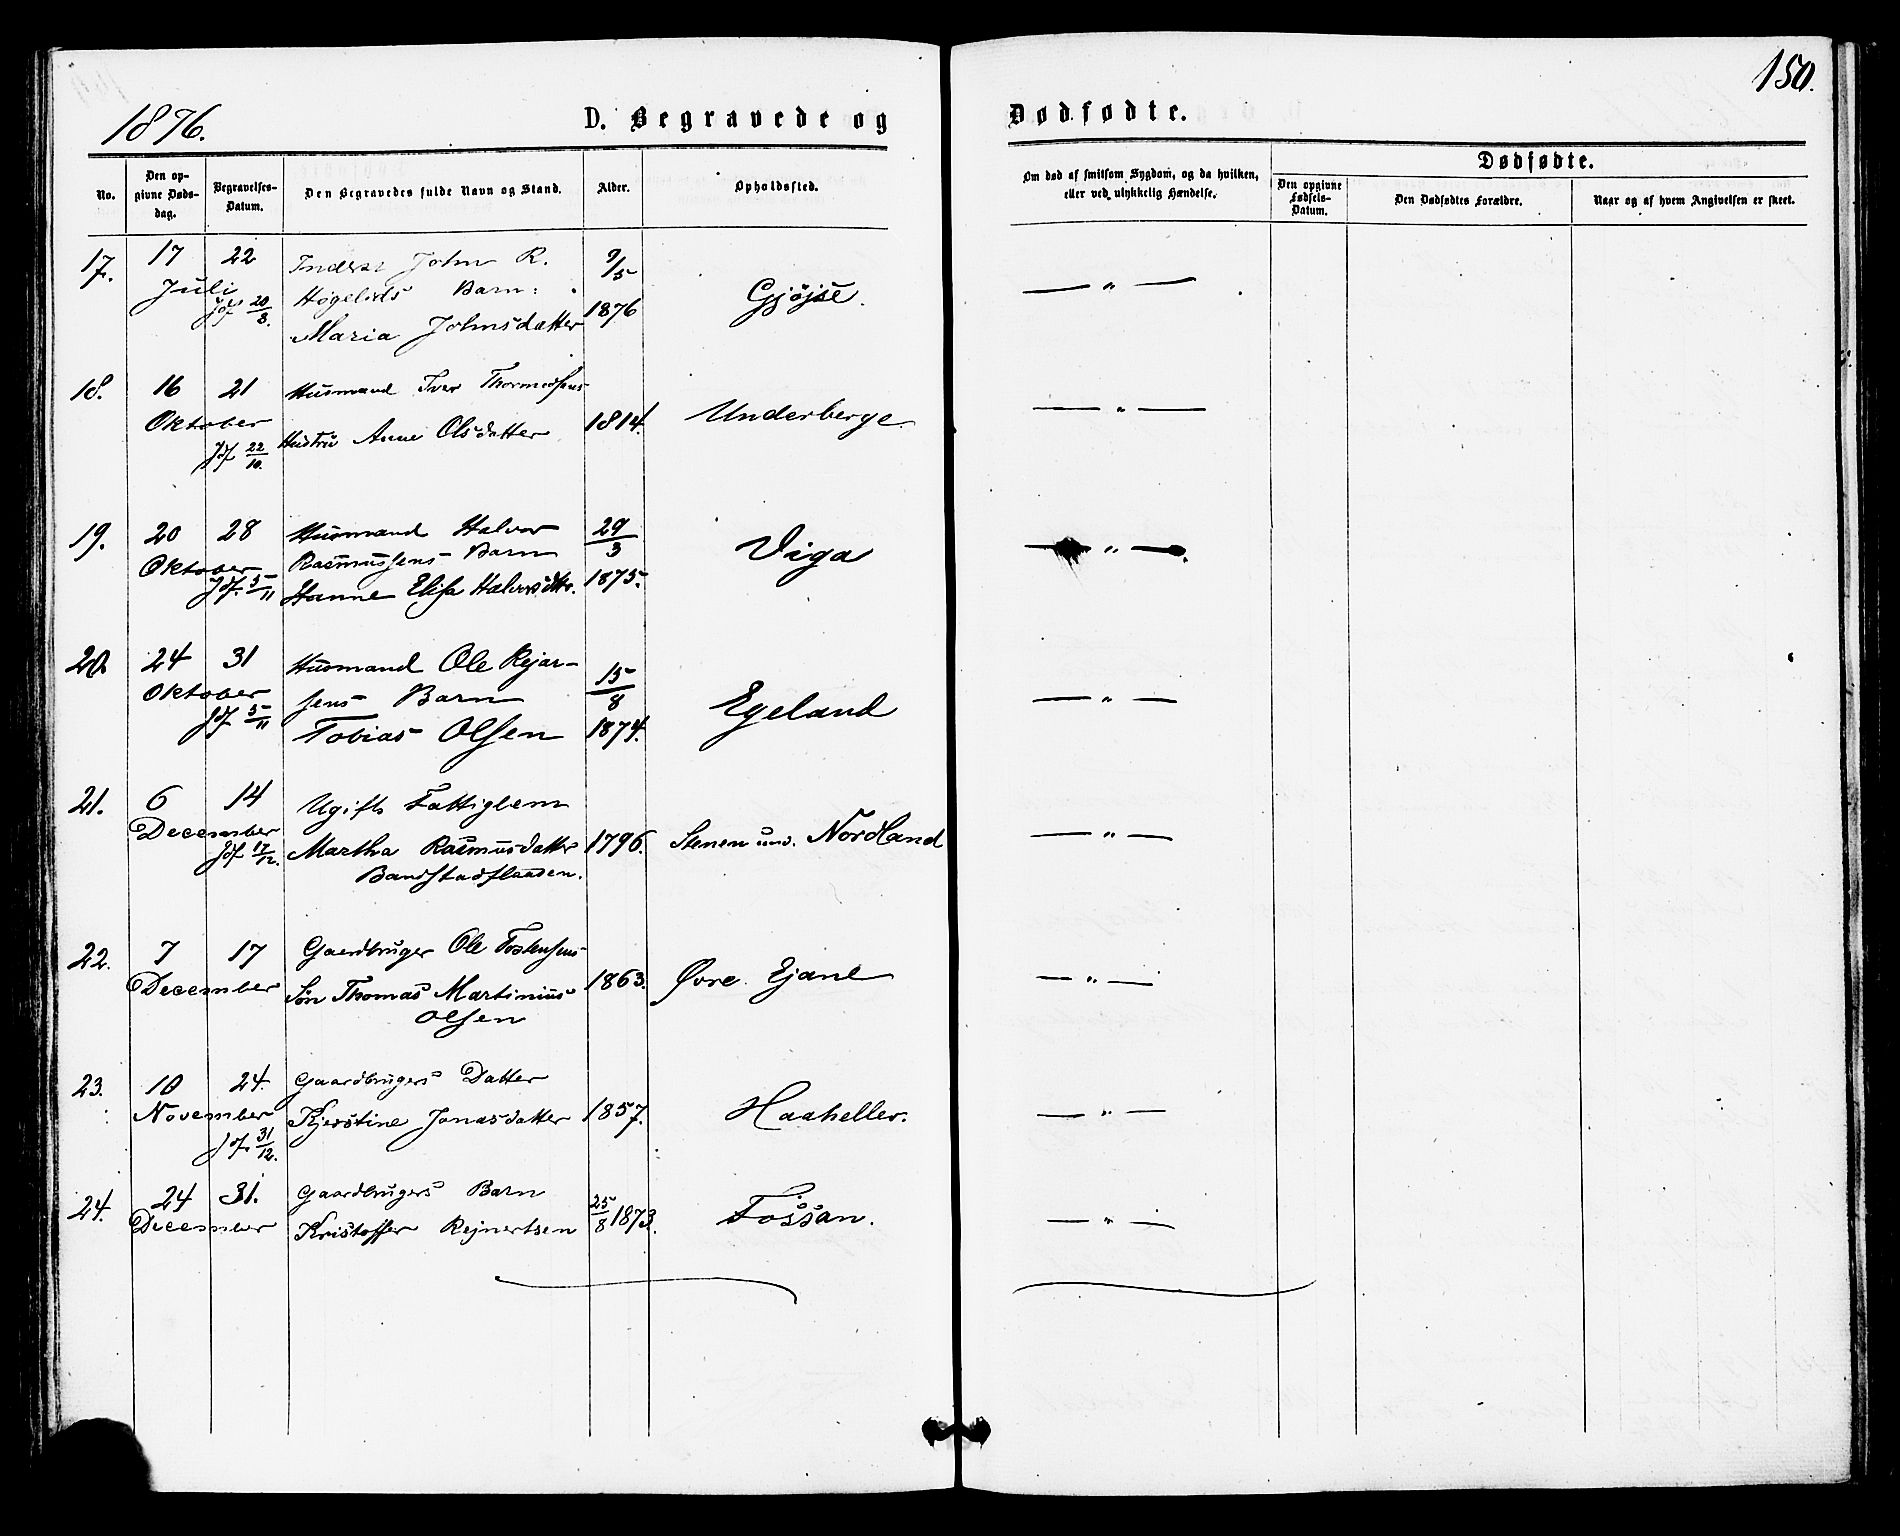 150.
1876.
D. Begravede og Dødfødte.
No.
Den opgivne Dødsdag.
Begravelses-Datum.
Den Begravedes fulde Navn og Stand.
Alder.
Opholdssted.
Om død af smitsom Sygdom, og da hvilken, eller ved ulykkelig Hændelse.
Dødfødte.
Den opgivne Fødsels-Datum.
Den Dødfødtes Forældre.
Naar og af hvem Angivelsen er skeet.
17. 17 22 John R. 9/5
Juli Barn:
Jdf 20/8. Maria Johnsdatter 1876 — " —
18. 16 21 Husmand Iver
Oktober Hustru Anne Olsdatter 1814. Underberge — " —
Jdf 22/10.
19. 20 28 Husmand Halvor 29/3 Viga — " —
Oktober Rasmussens Barn
Jdf. 5/11 Hanne Elisa Halvorsdttr. 1875.
20 24 31 Husmand Ole Rejar-
Oktober sens Barn 15/8 Egeland — " —
Jdf 5/11 Tobias Olsen 1874.
21. 6 14 Ugift Fattiglem
December Martha Rasmusdatter 1796. Stenen und. Nordland — " —
Jdf 17/12.
22. 7 17 Gaardbruger Ole Tostensens
December Søn Thomas Martinius 1863. Øvre Ejane — " —
Olsen
23. 10 24. Gaardbrugers Datter
November Kjerstine Jonasdatter 1857. Haaheller. — " —
Jdf. 31/12.
24. 24 31. Gaardbrugers Barn
December Kristoffer Rejnertsen 25/8 1873. Fossan. — " —